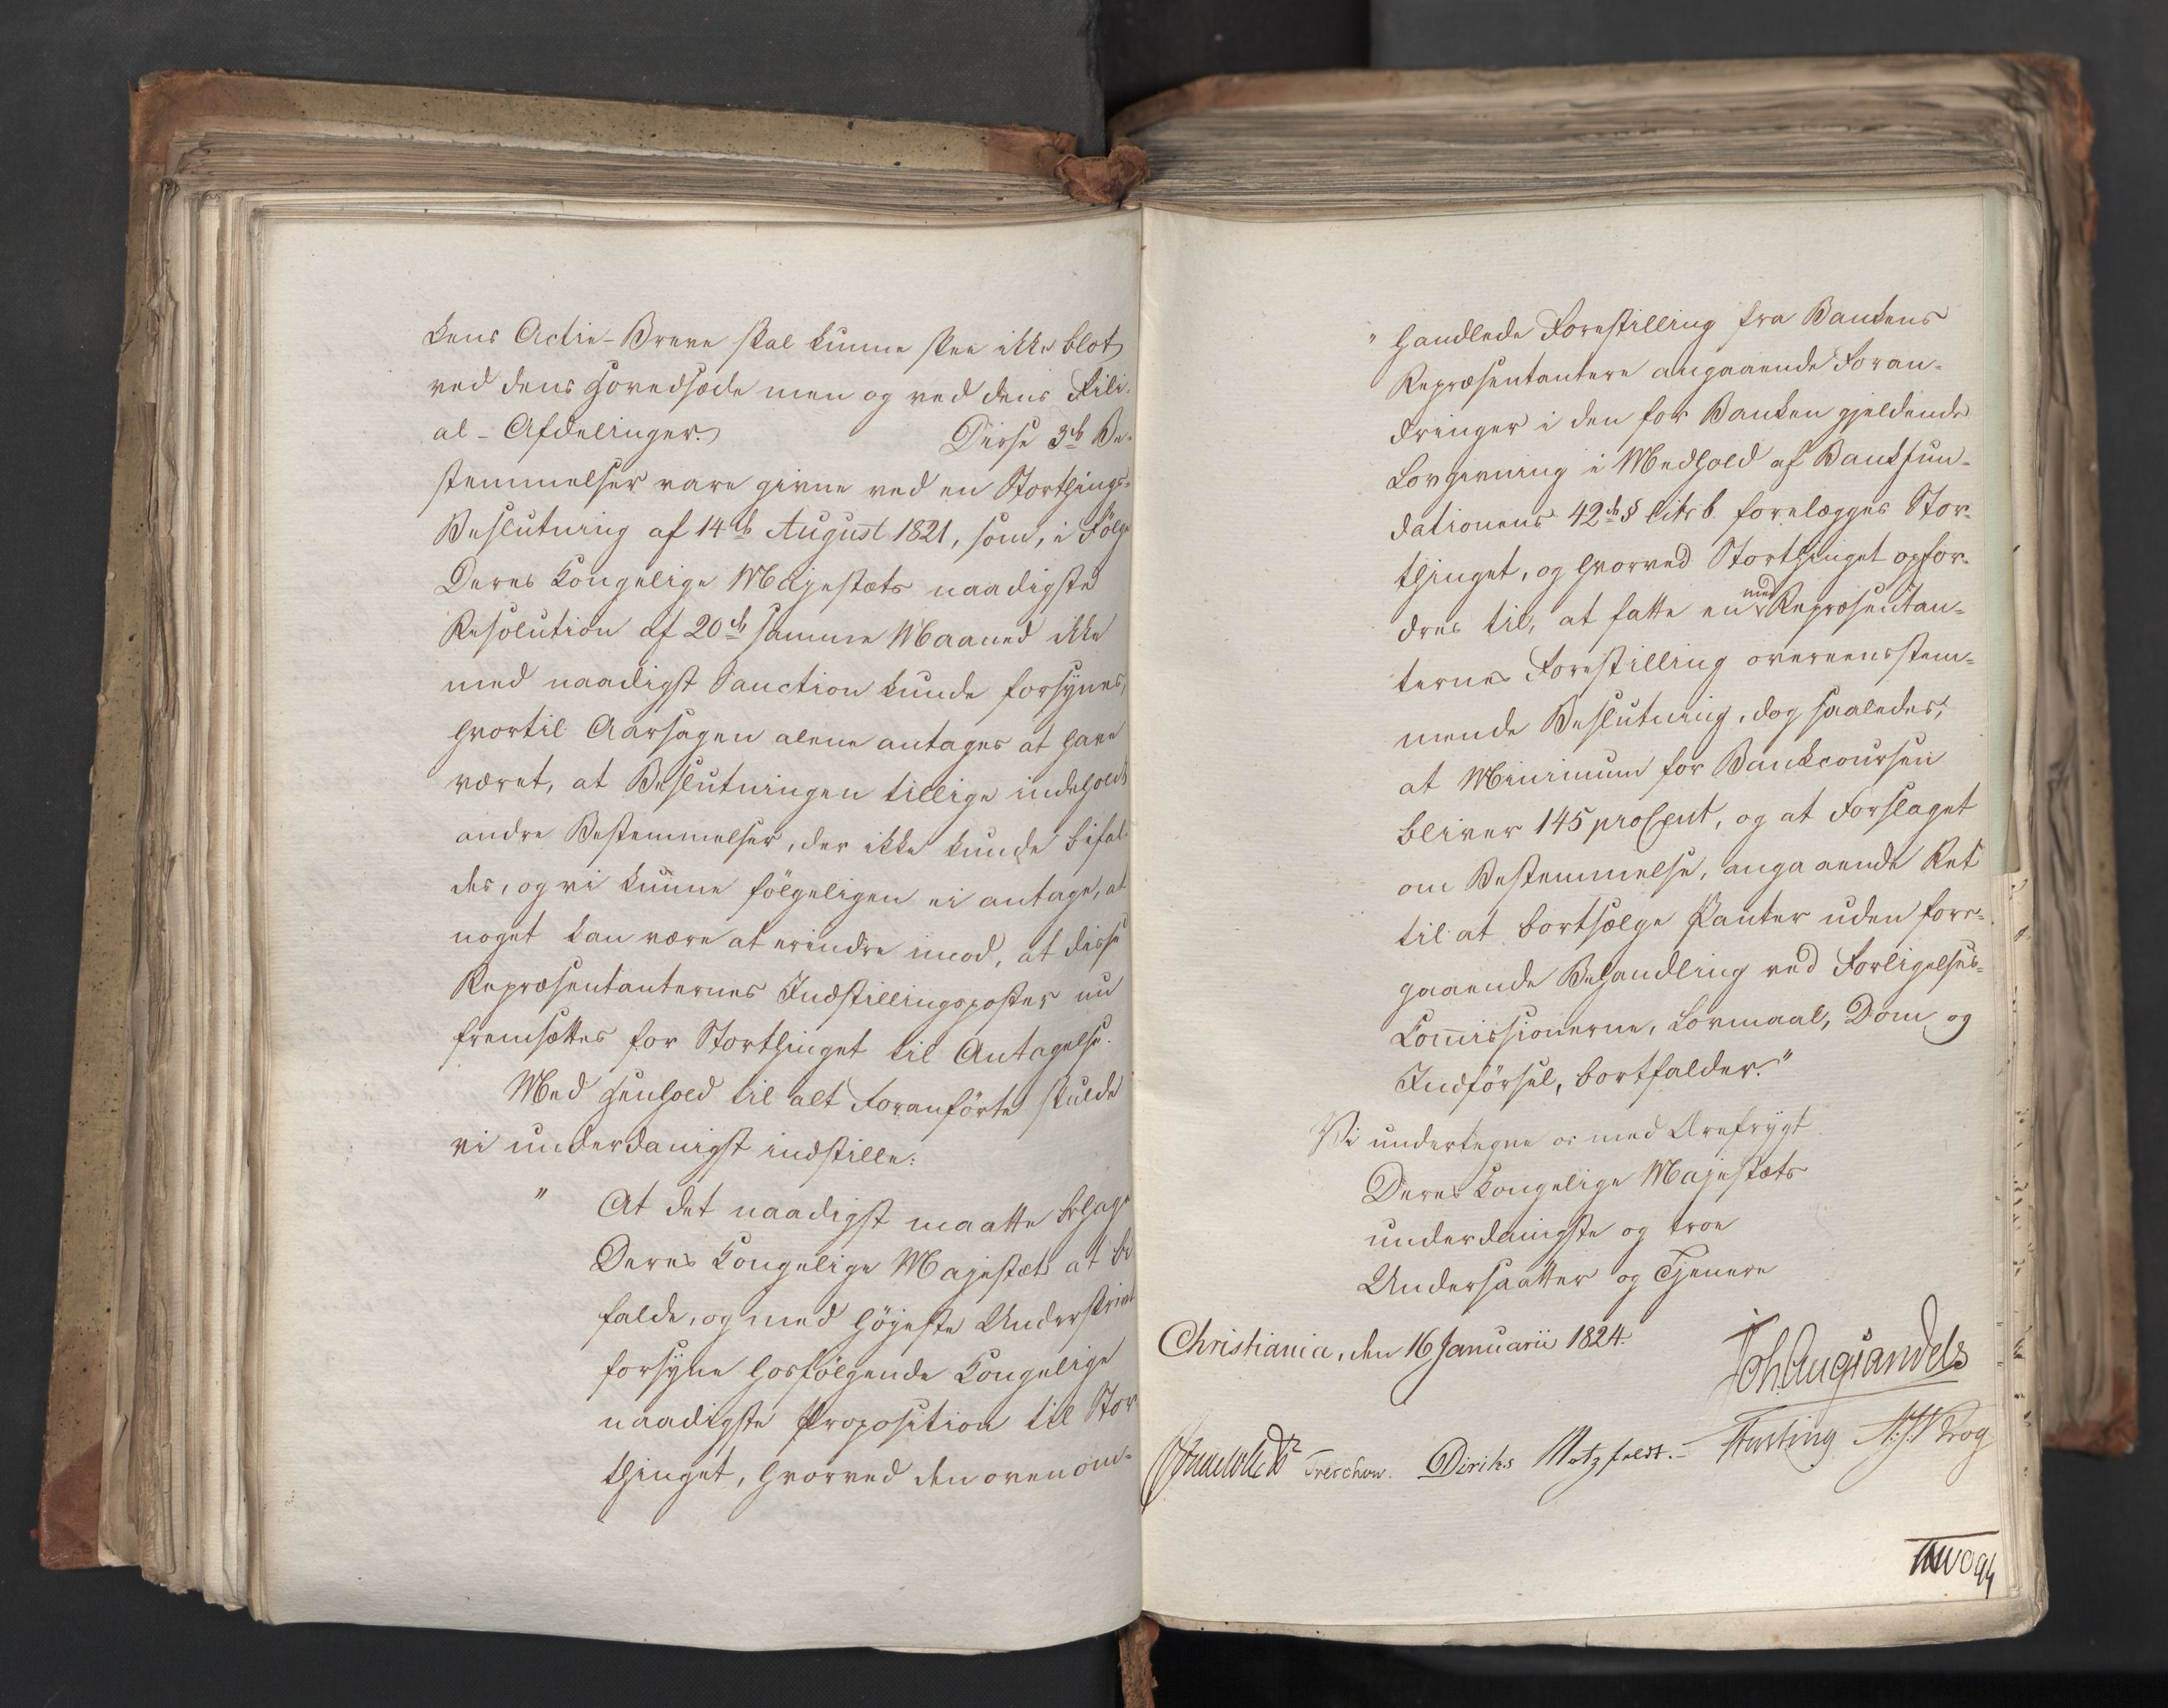 kens Actie-Breve skal kunne skee ikke blot
ved dens Hovedsæde men og ved dens Fili-
al-Afdelinger. Disse 3de Be-
stemmelser vare givne ved en Storthings-
Beslutning af 14de August 1821, som, i Følge
Deres Kongelige Majestæts naadigste
Resolution af 20de samme Maaned ikke
med naadigst Sanction kunde forsynes,
hvortil Aarsagen alene antages at have
været, at Beslutningen tillige indeholdt
andre Bestemmelser, der ikke kunde bifal-
des, og vi kunne følgeligen ei antage, at
noget kan være at erindre imod, at disse
Repræsentanternes Indstillingsposter nu
fremsættes for Storthinget til Antagelse.
Med Henhold til alt Foranførte skulde
vi underdanigst indstille:
" At det naadigst maatte behage
Deres Kongelige Majestæt at bi-
falde, og med høyeste Underskrivt
forsyne hosfølgende Kongelige
naadigste Proposition til Stor-
thinget, hvorved den ovenom-
" handlede Forestilling fra Bankens
Repræsentantere angaaende Foran-
dringer i den for Banken gjeldende
Lovgivning i Medhold af Bankfun-
dationens 42de § litr b. forelægges Stor-
thinget, og hvorved Storthinget opfor-
dres til, at fatte en med Repræsentan-
ternes Forestilling overeensstem-
mende Beslutning, dog saaledes,
at Minimum for Bankcoursen
bliver 145 proCent, og at Forslaget
om Bestemmelse, angaaende Ret
til at bortsælge Panter uden fore-
gaaende Behandling ved Forligelses-
Commissionerne, Lovmaal, Dom og
Indførsel, bortfalder."
Vi undertegne os med Ærefrygt
Deres Kongelige Majestæts
underdanigste og troe
Undersaatter og Tjenere
Christiania, den 16 Januarii 1824.
Joh. Aug. Sandels
Treschow. Diriks Motzfeldt. Fasting